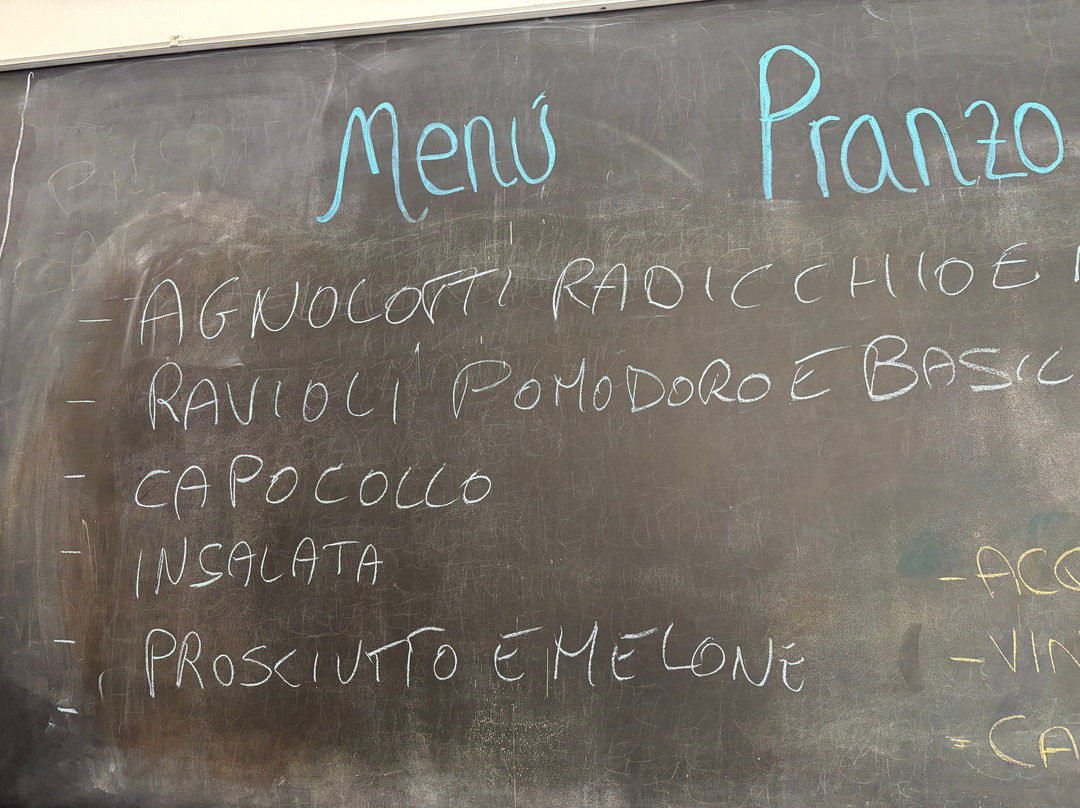 Menú Pranzo
- AGNOLOTTI RADICCHIO E
- RAVIOLI POMODORO E BASIC
- CAPOCOLLO
- INSALATA
- PROSCIUTTO E MELONE
-
- ACQ
- VIN
- CA